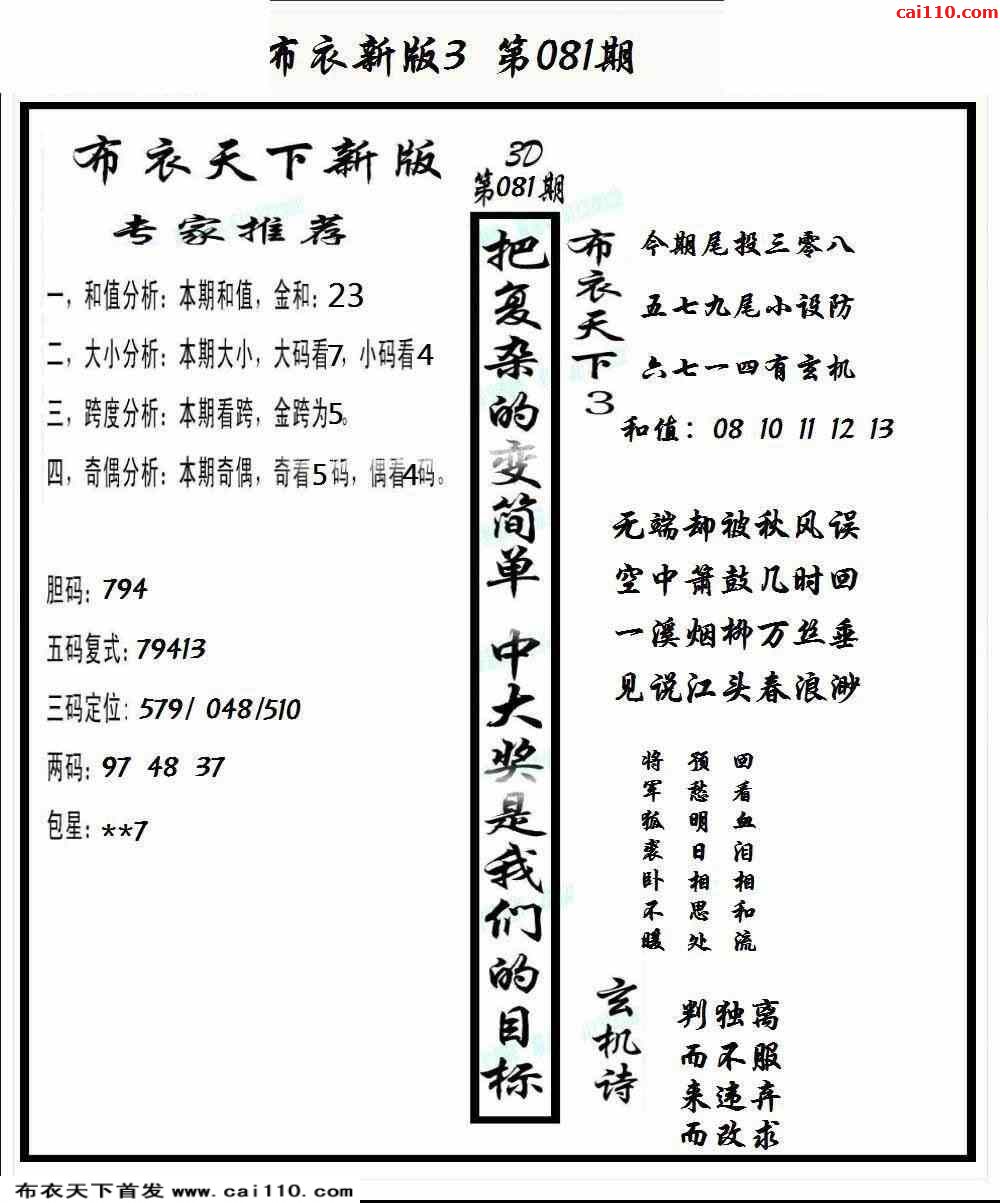 cai110.com
布衣新版3 第081期
布衣天下新版
专家推荐
一，和值分析：本期和值，金和：23
二，大小分析：本期大小，大码看7，小码看4
三，跨度分析：本期看跨，金跨为5。
四，奇偶分析：本期奇偶，奇看5码，偶看4码。
胆码：794
五码复式：79413
三码定位：579/ 048/510
两码：97 48 37
包星：**7
3D
第081期
把复杂的变简单 中大奖是我们的目标
布衣天下3
今期尾投三零八
五七九尾小设防
六七一四有玄机
和值：08 10 11 12 13
无端却被秋风误
空中箫鼓几时回
一溪烟柳万丝垂
见说江头春浪渺
回看血泪相和流
预愁明日相思处
将军狐裘卧不暖
玄机诗
判独离
而不服
来违弃
而改求
布衣天下首发 www.cai110.com